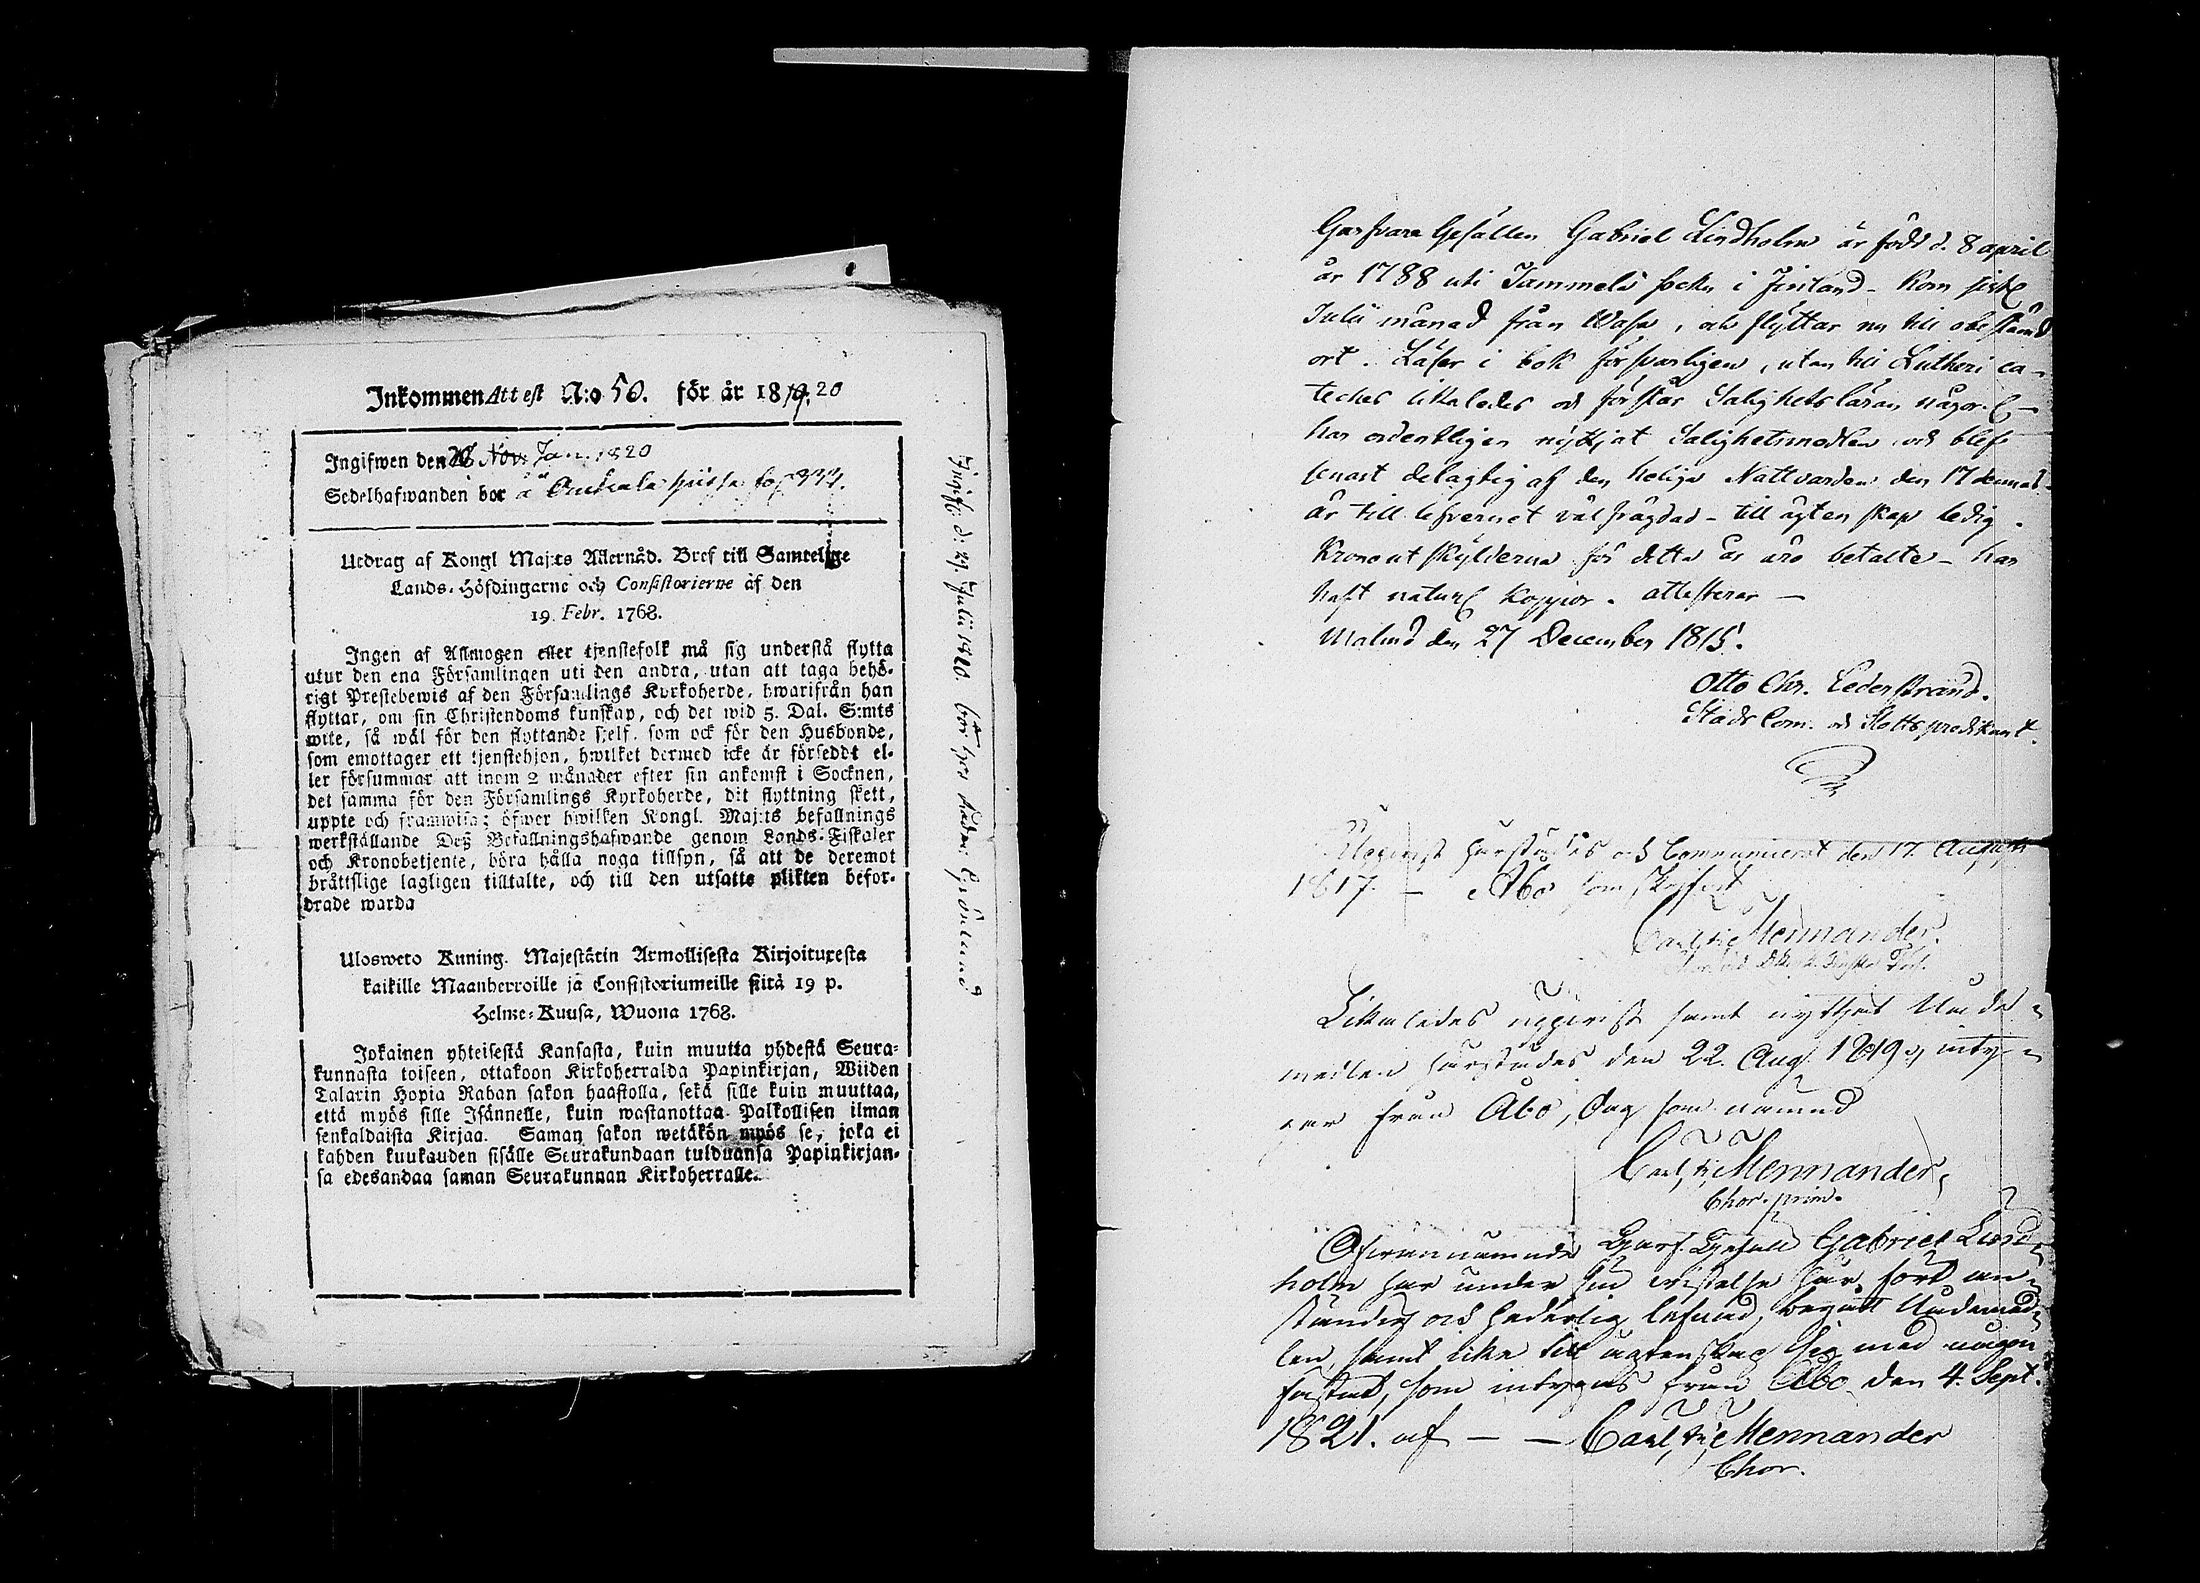 Inkommen Attest N:o 50. för år 1819. 20
Ingifwen den 26 Nov: Jan. 1820
Sedelhafwanden bor å
Utdrag af Kongl Maj:ts Allernåd. Bref till Samtelige
Lands-Höfdingarne och Consistorierne af den
19 Febr. 1768.
Ingen af Allmogen eller tjenstefolk må sig understå flytta
utur den ena Församlingen uti den andra, utan att taga behö-
rigt Prestebewis af den Församlings Kyrkoherde, hwarifrån han
flyttar, om sin Christendoms kunskap, och det wid 5. Dal. S:mts
wite, så wäl för den flyttande sjelf, som ock för den Husbonde,
som emottager ett tjenstehjon, hwilket dermed icke är försedt el-
ler försummar att inom 2 månader efter sin ankomst i Socknen,
det samma för den Församlings Kyrkoherde, dit flyttning skett,
uppte och framwisa; öfwer hwilken Kongl. Maj:ts befallnings
werkställande Deß Befallningshafwande genom Lands-Fiskaler
och Kronobetjente, böra hålla noga tillsyn, så att de deremot
bråttslige lagligen tilltalte, och till den utsatte plikten befor-
drade warda
Ulosweto Kuning. Majestätin Armollisesta Kirjoituxesta
kaikille Maanherroille ja Consistoriumeille siitä 19 p.
Helme-Kuusa, Wuona 1768.
Jokainen yhteisestä Kansasta, kuin muutta yhdestä Seura-
kunnasta toiseen, ottakoon Kirkoherralda Papinkirjan, Wiiden
Talarin Hopia Rahan sakon haastolla, sekä sille kuin muuttaa,
että myös sille Isännelle, kuin wastanottaa Palkollisen ilman
senkaldaista Kirjaa. Saman sakon wetäkön myös se, joka ei
kahden kuukauden sisälle Seurakundaan tulduansa Papinkirjan-
sa edesandaa saman Seurakunnan Kirkoherralle.
Ingift: d: 29. Julii 1820. bor hos
Garfvare Gesällen Gabriel Lindholm är född d. 8 april
år 1788 uti Tammela socken i Finland - kom sistl
Julii månad från Wasa, och flyttar nu till obestämd
ort. Läser i bok försvarligen, utan till Lutheri ca-
teches likaledes och förstår Salighetsläran någorl. -
har ordentligen nyttjat Salighetsmedlen och blef
senast delagtig af den heliga Nattvarden den 17 dennes -
är till lefvernet väl frägdad - till ägtenskap ledig.
Kronoutskylderna för detta år äro betalte - har
haft naturl koppior. attesterar -
Malmö den 27 December 1815.
Otto Chr. Cederstrand.
Stads Com. och Slottspredikant.
härstädes och Communicerat den 17. Augusti
1817. - Åbo som skrifvit
Carl Fr. Mennander.
Likaledes samt nyttjat Nåde-
medlen härstädes den 22. Aug. 1819, inty-
gar från Åbo, dag som nämnd
Carl Fr. Mennander,
Chor. prim.
Ofvannämnde Garf. Gesäll Gabriel Lind-
holm har under sin vistelse här, fört an-
ständig och hederlig lefnad, begått Nådemed-
len, samt icke till ägtenskap sig med någon
fästat, som intygas från Åbo den 4. Sept.
1821. af - - Carl Fr. Mennander
Chor.